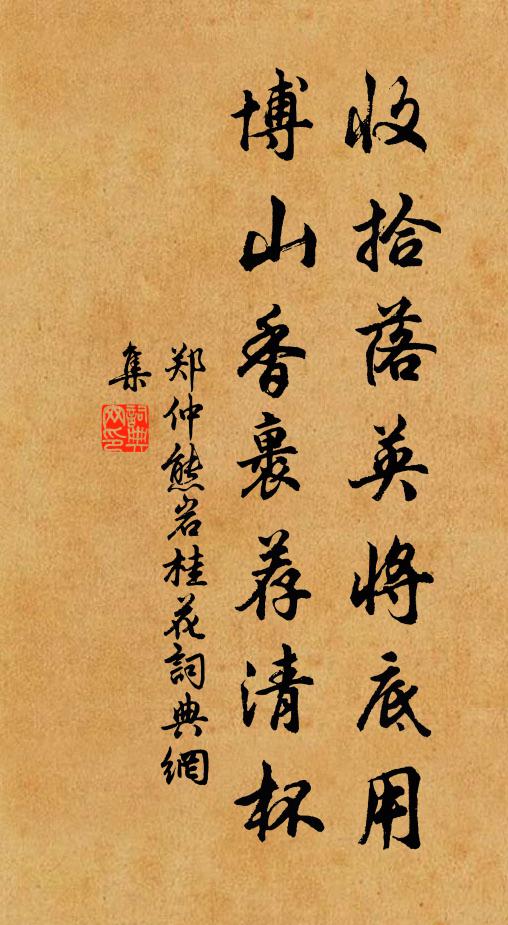 收拾落英将底用
博山香裹荐清杯
郑仲熊岩桂花詞典網
集
詞典
网印